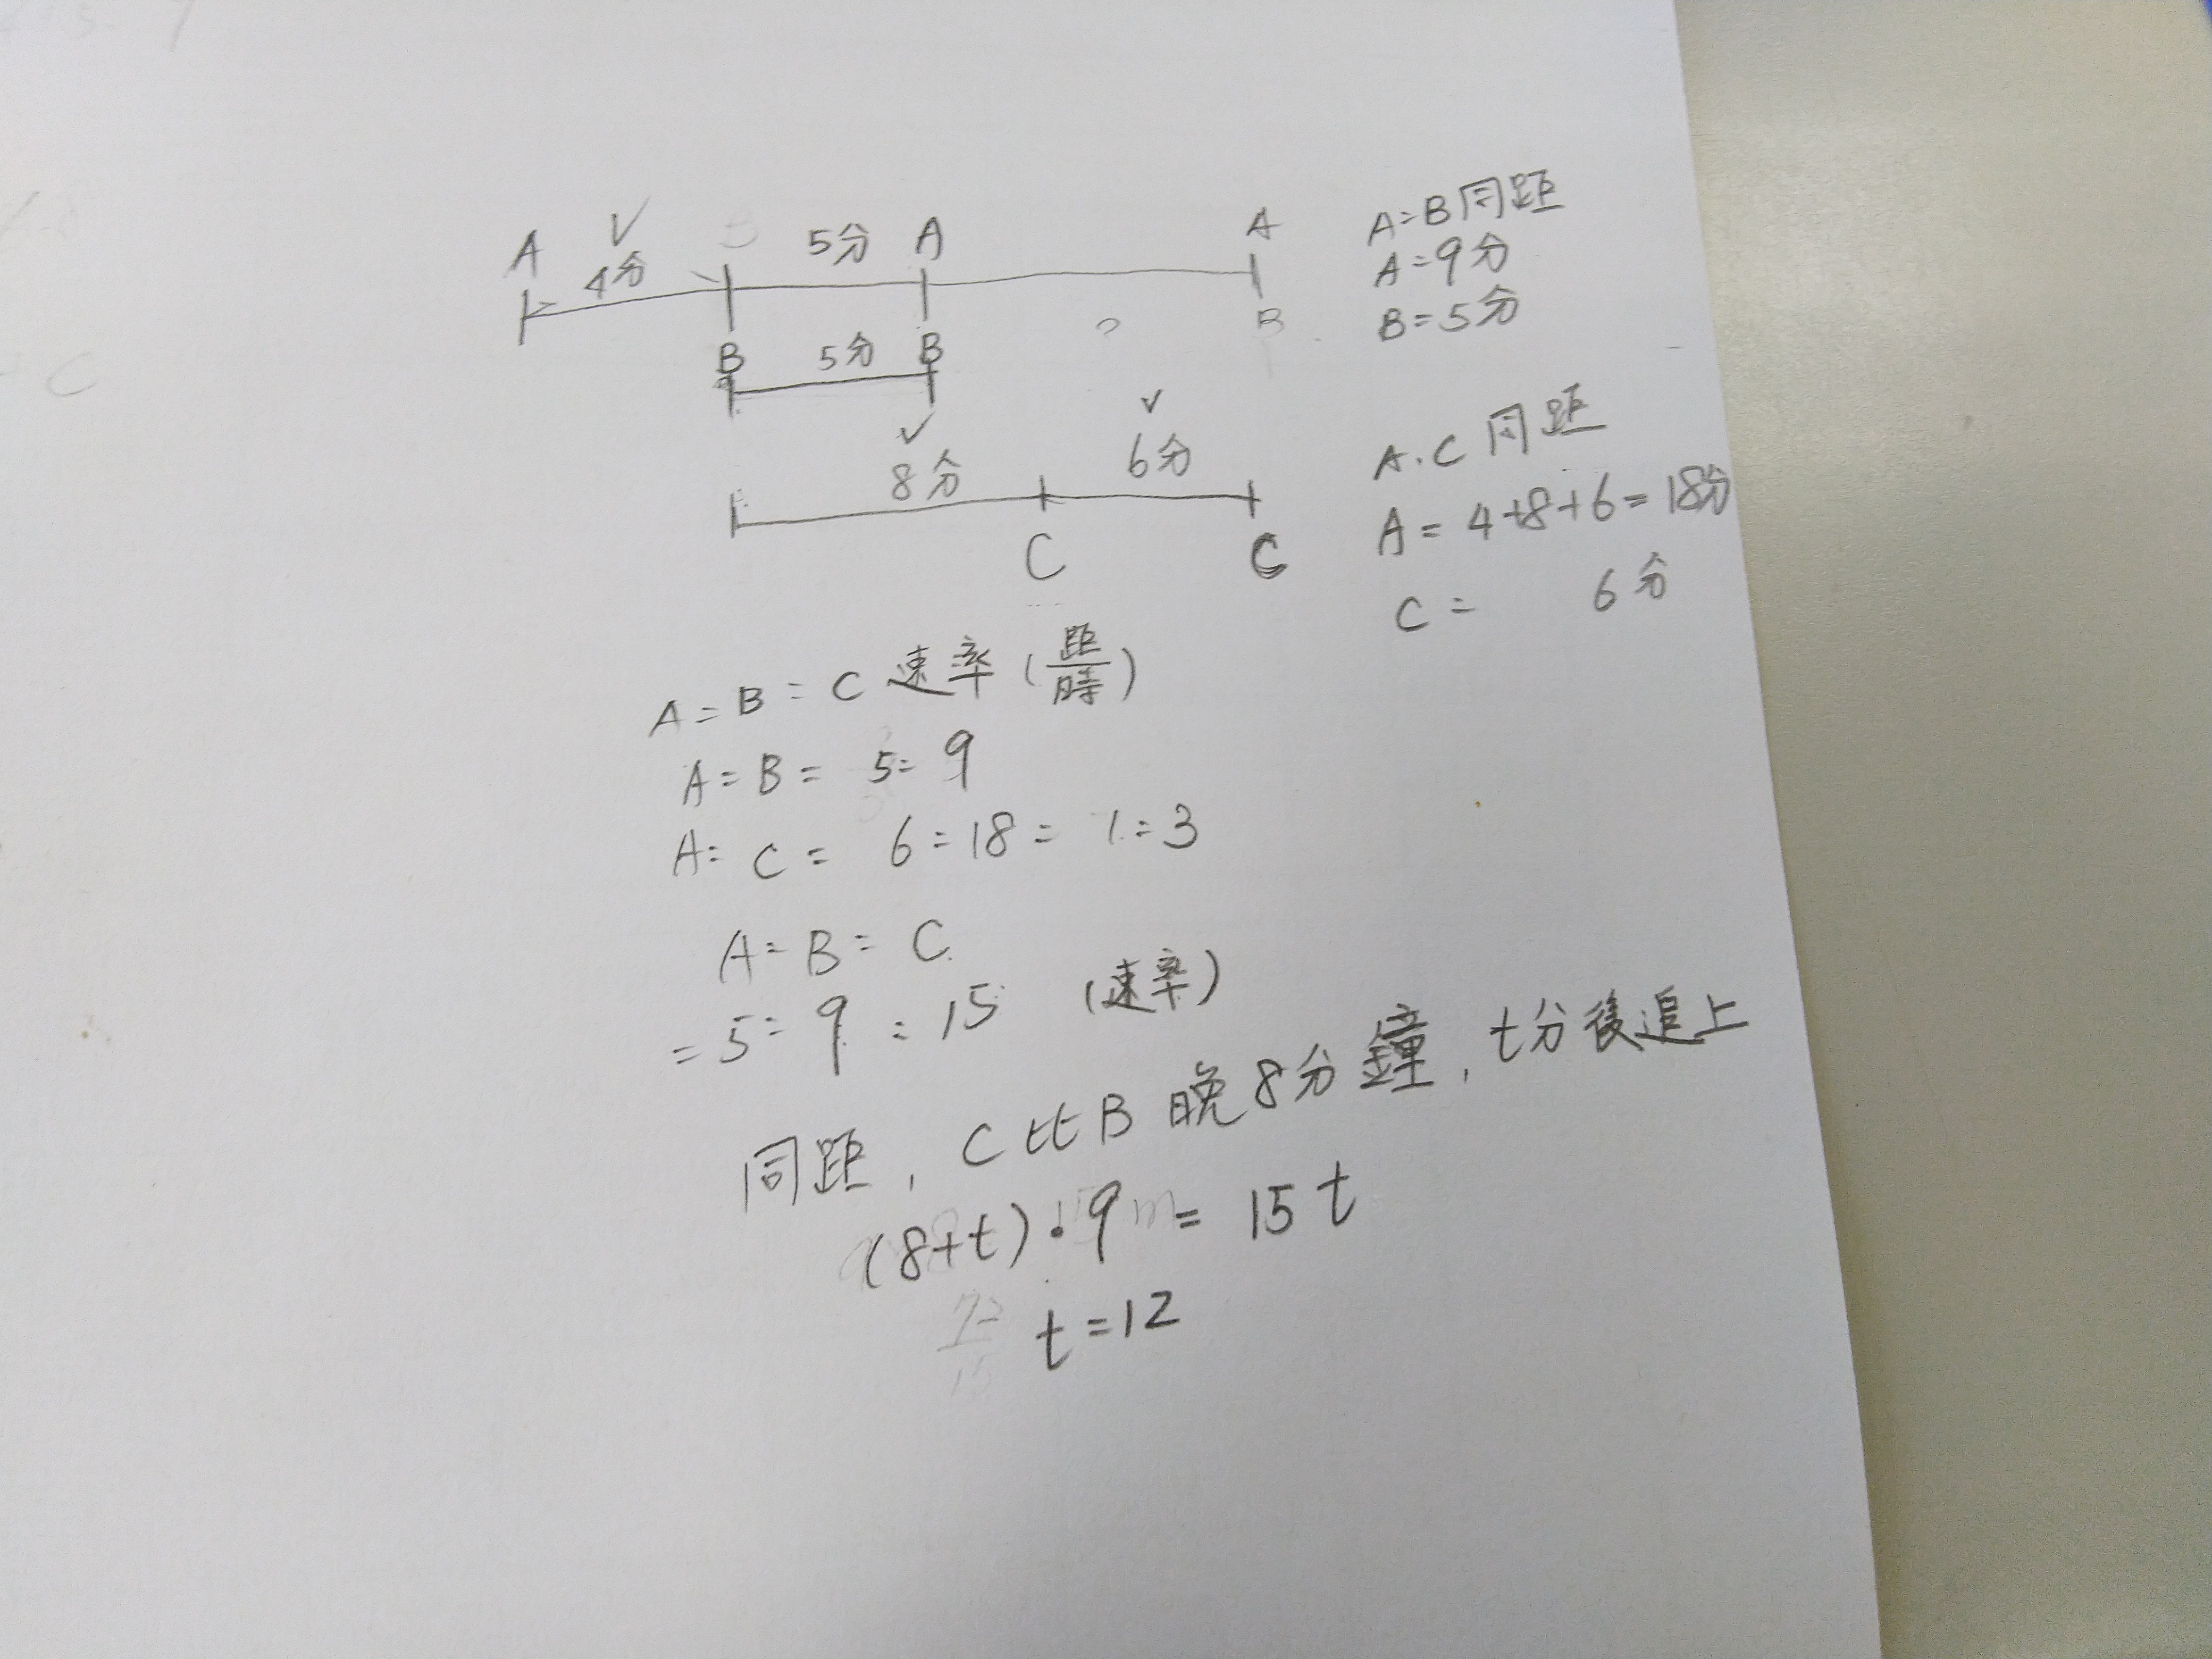 A 4分 5分 A A
B 5分 B B
8分 6分
C C
A=B同距
A=9分
B=5分
A.C同距
A=4+8+6=18分
C= 6分
A:B:C 速率(距/時)
A:B= 5:9
A:C= 6:18= 1:3
A:B:C
=5:9:15 (速率)
同距, C比B晚8分鐘, t分後追上
(8+t)·9=15t
t=12